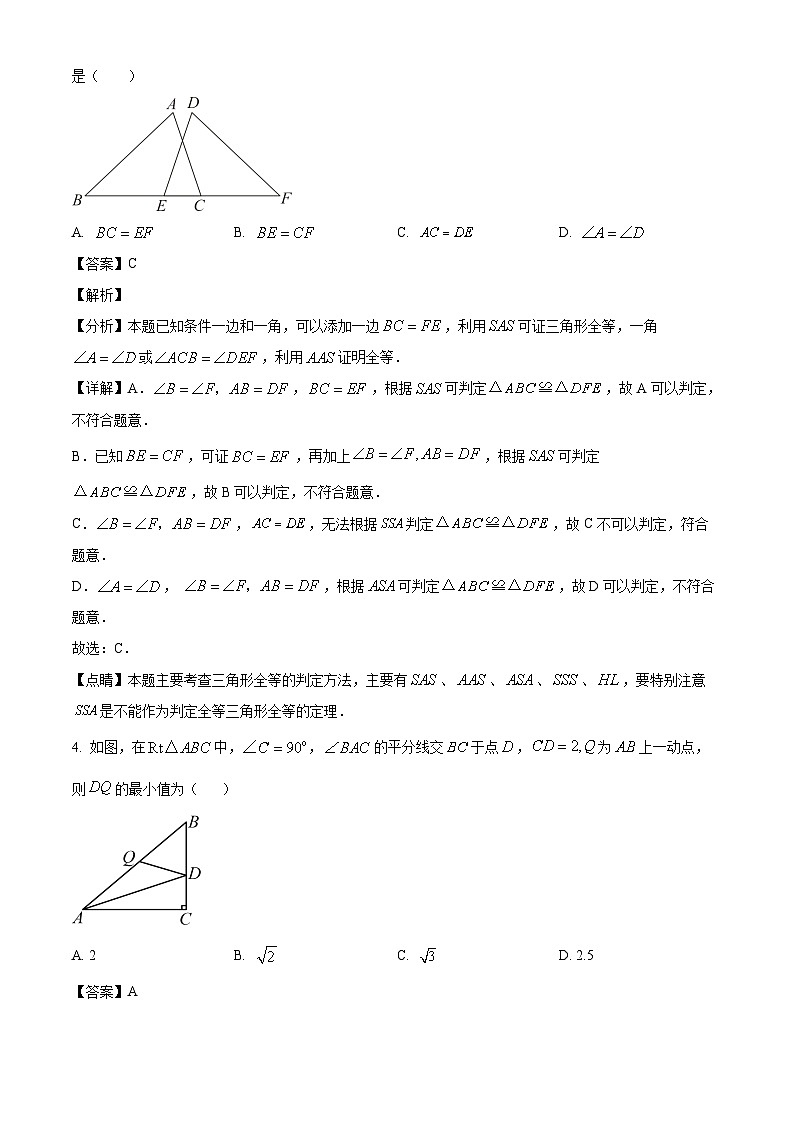 是（　　）
A D
B E C F
A. BC = EF B. BE = CF C. AC = DE D. ∠A = ∠D
【答案】C
【解析】
【分析】本题已知条件一边和一角，可以添加一边 BC = FE，利用 SAS 可证三角形全等，一角
∠A = ∠D 或 ∠ACB = ∠DEF，利用 AAS 证明全等．
【详解】A．∠B = ∠F，AB = DF，BC = EF，根据 SAS 可判定 △ABC≌△DFE，故 A 可以判定，
不符合题意．
B．已知 BE = CF，可证 BC = EF，再加上 ∠B = ∠F, AB = DF，根据 SAS 可判定
△ABC≌△DFE，故 B 可以判定，不符合题意．
C．∠B = ∠F，AB = DF，AC = DE，无法根据 SSA 判定 △ABC≌△DFE，故 C 不可以判定，符合
题意．
D．∠A = ∠D， ∠B = ∠F，AB = DF，根据 ASA 可判定 △ABC≌△DFE，故 D 可以判定，不符合
题意．
故选：C．
【点睛】本题主要考查三角形全等的判定方法，主要有 SAS、AAS、ASA、SSS、HL，要特别注意
SSA 是不能作为判定全等三角形全等的定理．
4. 如图，在 Rt△ABC 中，∠C = 90°，∠BAC 的平分线交 BC 于点 D，CD = 2, Q 为 AB 上一动点，
则 DQ 的最小值为（　　）
B
Q
D
A C
A. 2 B. √2 C. √3 D. 2.5
【答案】A